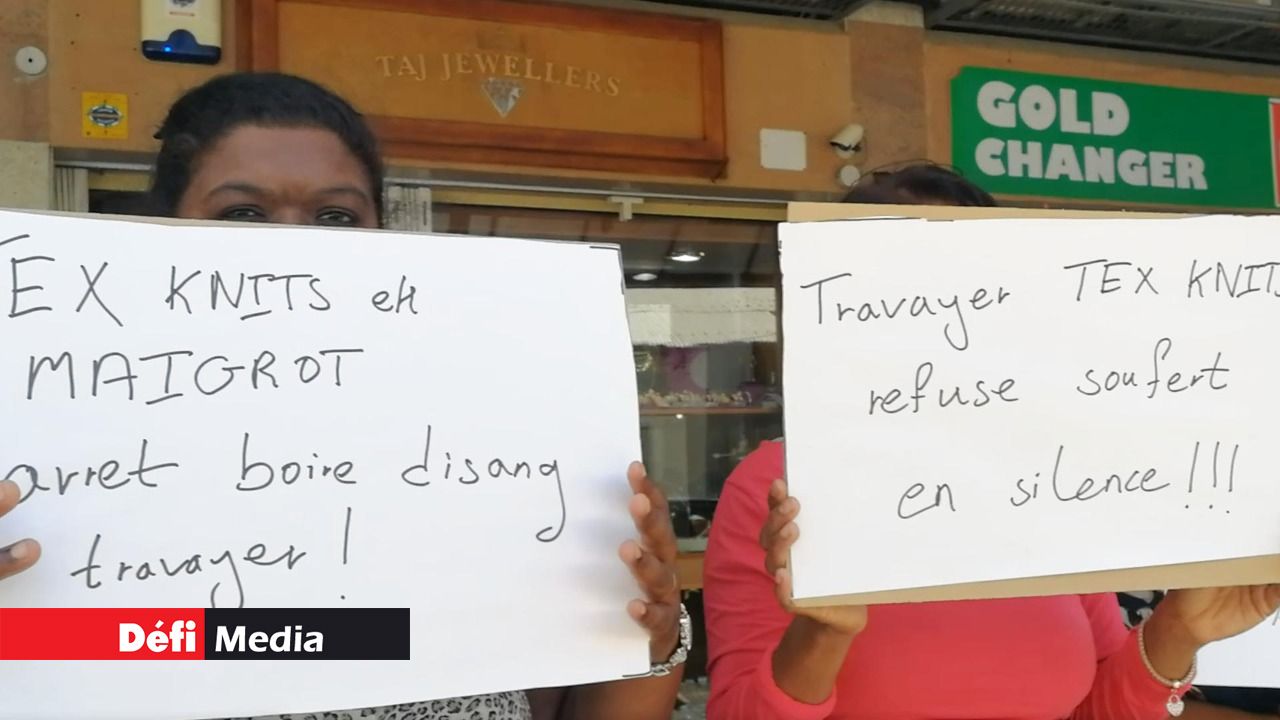 TAJ JEWELLERS
GOLD
CHANGER
TEX KNITS ek
MAIGROT
arret boire disang
travayer !
Travayer TEX KNITS
refuse soufert
en silence !!!
Défi Media